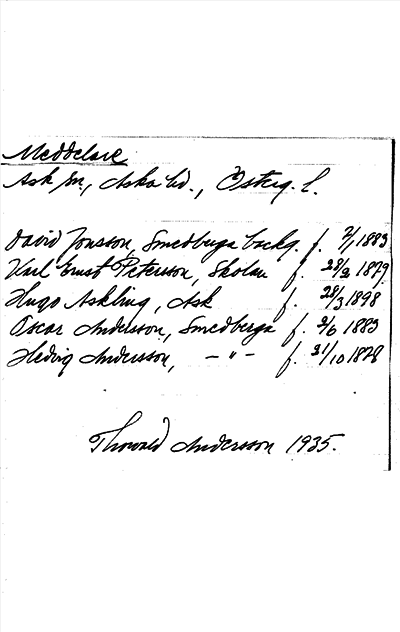 Meddelare
Ask sn., Aska hd., Österg. l.
David Jonsson, Smedberga backg. f. 2/1 1883
Karl Ernst Peterson, Skolan f. 28/2 1879
Hugo Askling, Ask f. 28/3 1898
Oscar Andersson, Smedberga f. 2/6 1883
Hedvig Andersson, – " – f. 21/10 1878
Thorvald Andersson 1935.